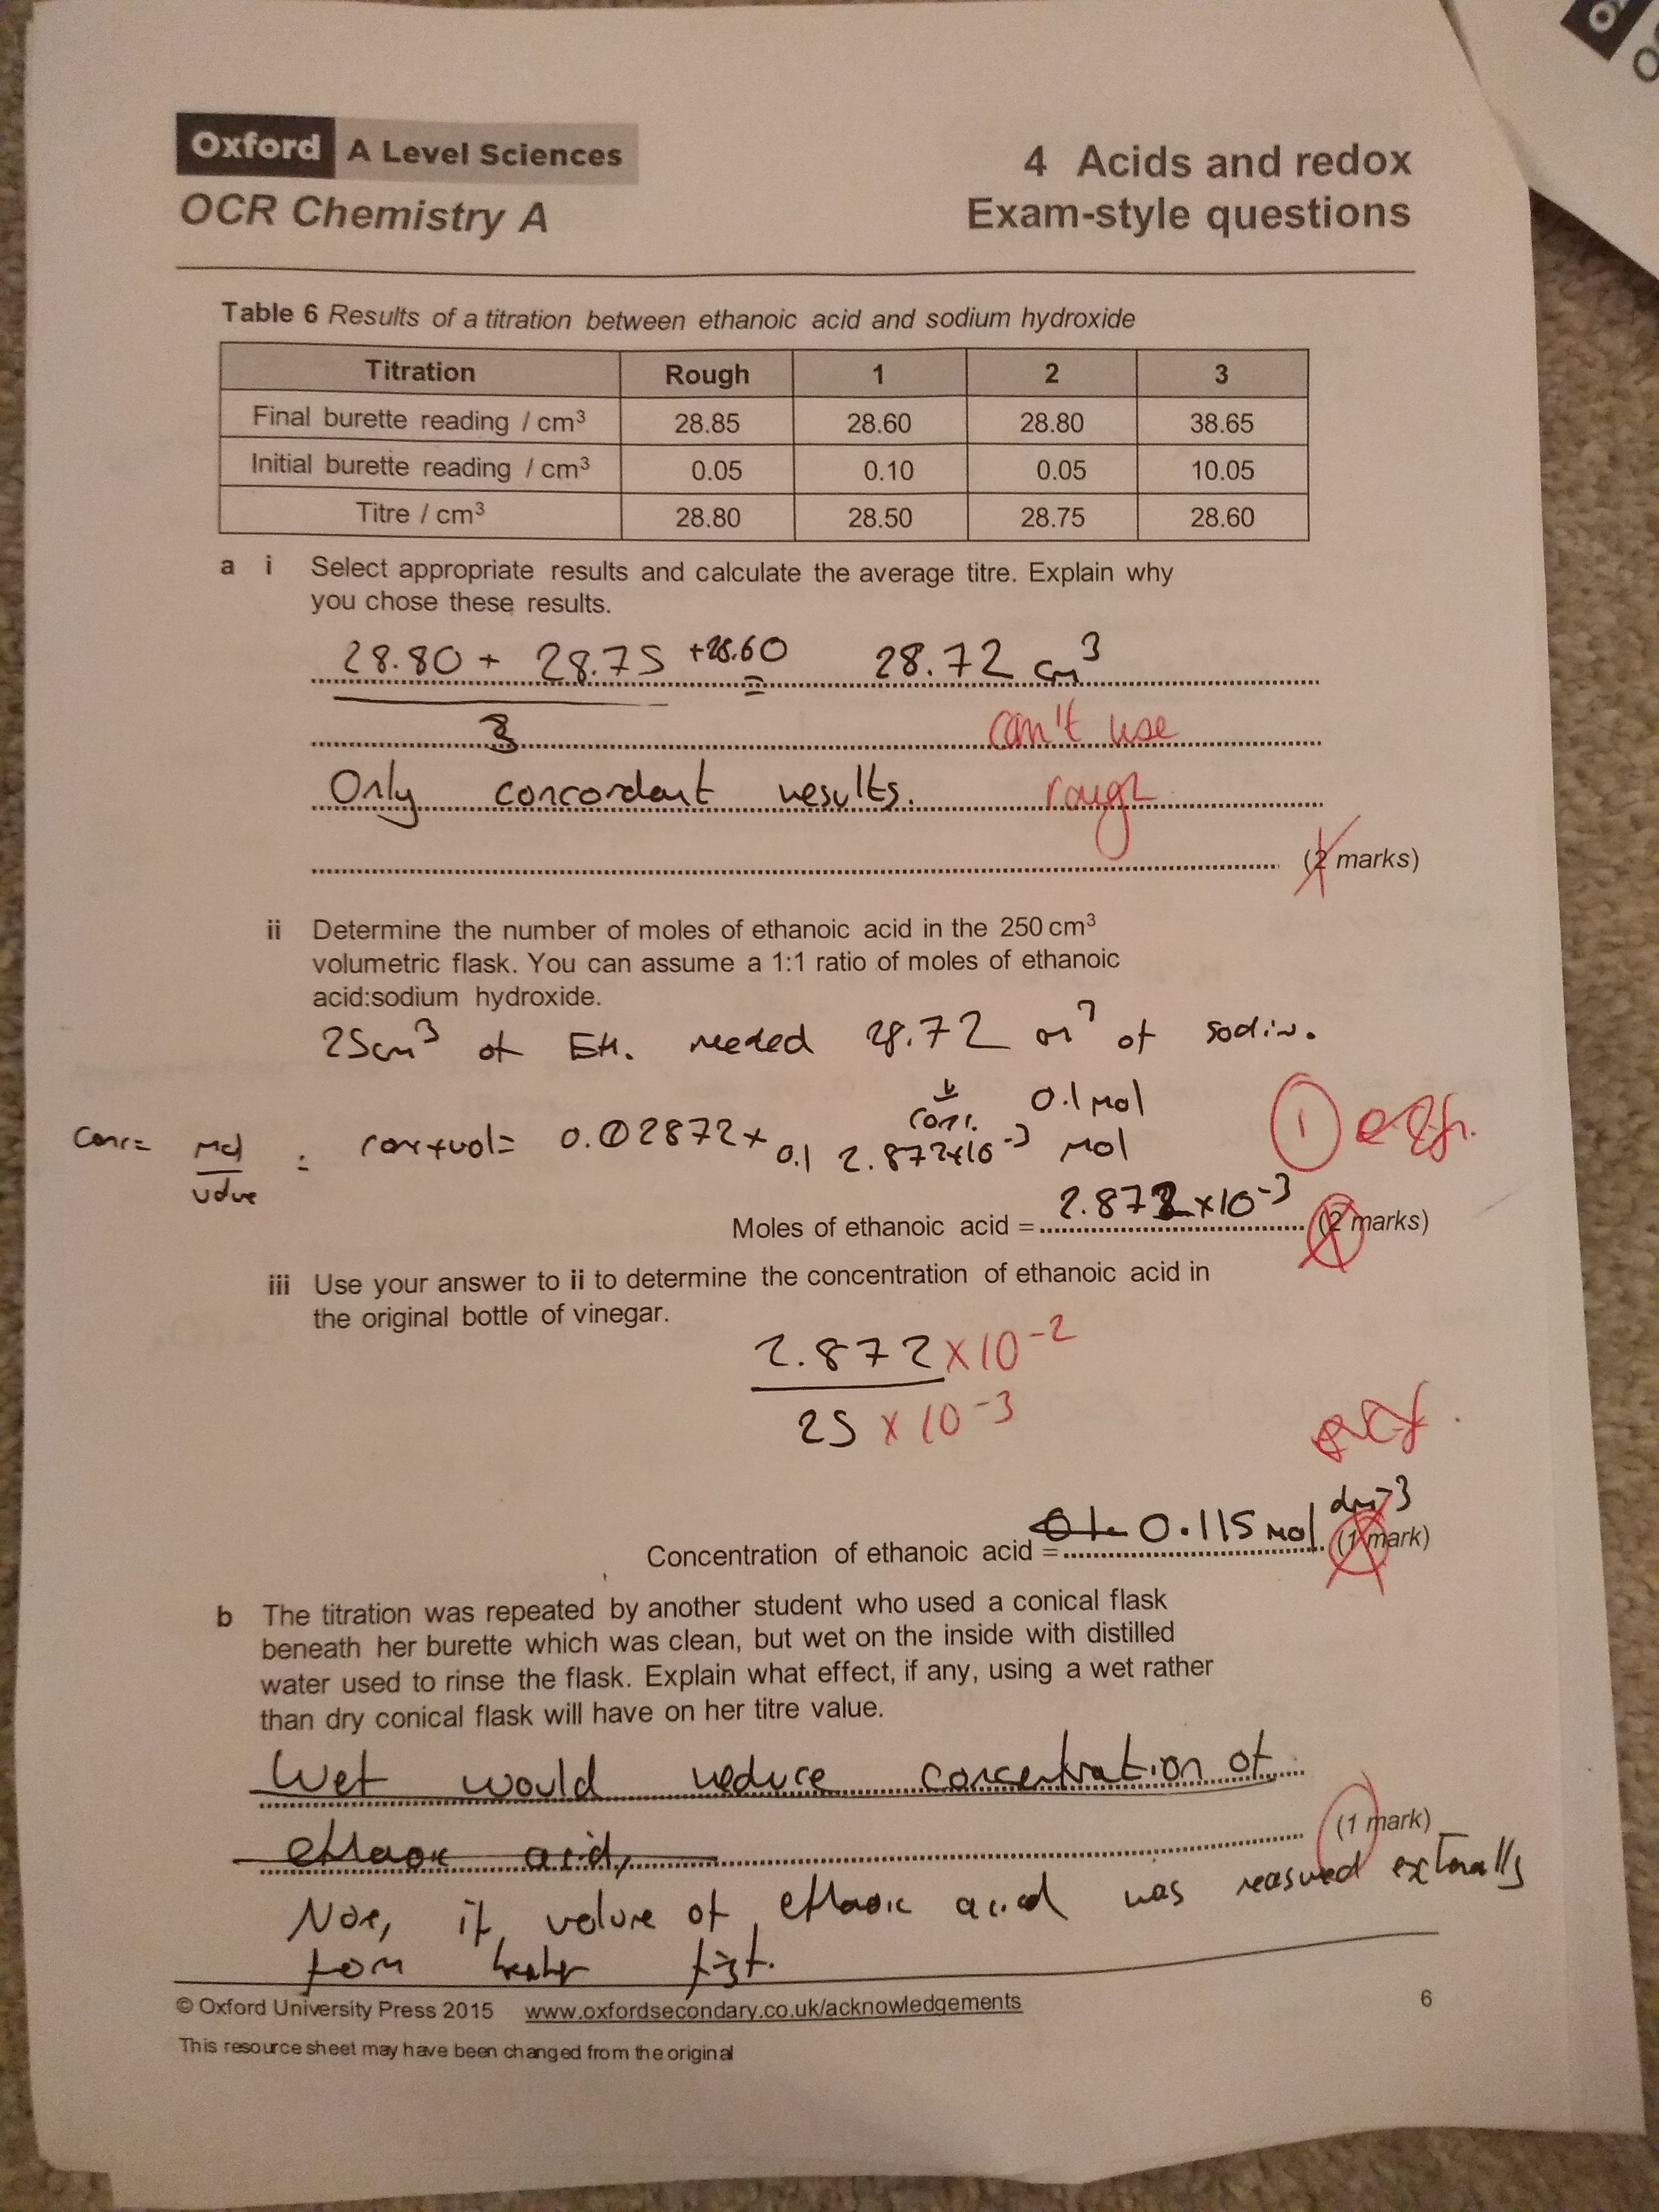 Oxford A Level Sciences
OCR Chemistry A
4 Acids and redox
Exam-style questions
Table 6 Results of a titration between ethanoic acid and sodium hydroxide
Titration Rough 1 2 3
Final burette reading / cm³ 28.85 28.60 28.80 38.65
Initial burette reading / cm³ 0.05 0.10 0.05 10.05
Titre / cm³ 28.80 28.50 28.75 28.60
a i Select appropriate results and calculate the average titre. Explain why
you chose these results.
28.80 + 28.75 +28.60 = 28.72 cm³
3
can't use
Only concordant results. rough
(2 marks)
ii Determine the number of moles of ethanoic acid in the 250 cm³
volumetric flask. You can assume a 1:1 ratio of moles of ethanoic
acid:sodium hydroxide.
25cm³ of Eth. needed 28.72 cm³ of sodium.
conc. 0.1 mol
conc= mol = 0.02872 x 0.1 2.872x10⁻³ mol
1 ecf.
Moles of ethanoic acid = 2.872 x10⁻³ (2 marks)
iii Use your answer to ii to determine the concentration of ethanoic acid in
the original bottle of vinegar.
2.872 x10⁻²
25 x 10⁻³
ecf.
Concentration of ethanoic acid = 0.115 mol dm⁻³ (1 mark)
b The titration was repeated by another student who used a conical flask
beneath her burette which was clean, but wet on the inside with distilled
water used to rinse the flask. Explain what effect, if any, using a wet rather
than dry conical flask will have on her titre value.
Wet would reduce concentration of
ethanoic acid,
(1 mark)
None, if volume of ethanoic acid was measured externally
from first.
© Oxford University Press 2015 www.oxfordsecondary.co.uk/acknowledgements
6
This resource sheet may have been changed from the original